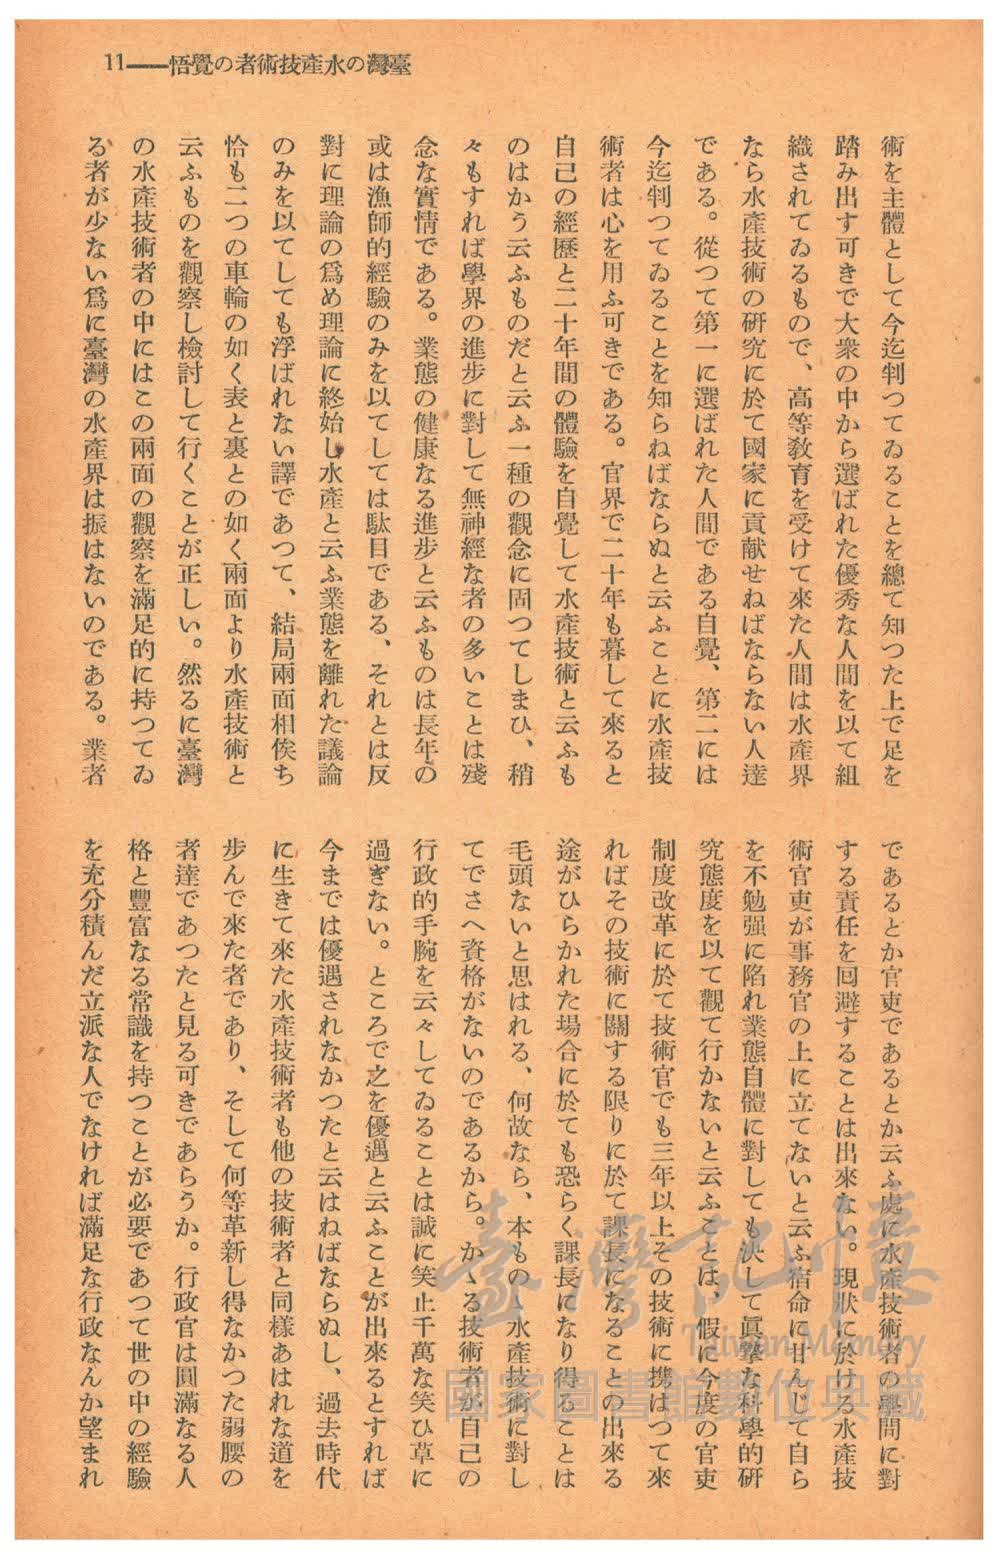 臺灣の水產技術者の覺悟——11
術を主體として今迄判つてゐることを總て知つた上で足を
踏み出す可きで大衆の中から選ばれた優秀な人間を以て組
織されてゐるもので、高等敎育を受けて來た人間は水產界
なら水產技術の硏究に於て國家に貢献せねばならない人達
である。從つて第一に選ばれた人間である自覺、第二には
今迄判つてゐることを知らねばならぬと云ふことに水產技
術者は心を用ふ可きである。官界で二十年も暮して來ると
自己の經歷と二十年間の體驗を自覺して水產技術と云ふも
のはかう云ふものだと云ふ一種の觀念に固つてしまひ、稍
々もすれば學界の進步に對して無神經な者の多いことは殘
念な實情である。業態の健康なる進步と云ふものは長年の
或は漁師的經驗のみを以てしては駄目である、それとは反
對に理論の爲め理論に終始し水產と云ふ業態を離れた議論
のみを以てしても浮ばれない譯であつて、結局兩面相俟ち
恰も二つの車輪の如く表と裏との如く兩面より水產技術と
云ふものを觀察し檢討して行くことが正しい。然るに臺灣
の水產技術者の中にはこの兩面の觀察を滿足的に持つてゐ
る者が少ない爲に臺灣の水產界は振はないのである。業者
であるとか官吏であるとか云ふ處に水產技術者の學問に對
する責任を囘避することは出來ない。現狀に於ける水產技
術官吏が事務官の上に立てないと云ふ宿命に甘んじて自ら
を不勉强に陷れ業態自體に對しても決して眞摯な科學的硏
究態度を以て觀て行かないと云ふことは、假に今度の官吏
制度改革に於て技術官でも三年以上その技術に携はつて來
ればその技術に關する限りに於て課長になることの出來る
途がひらかれた場合に於ても恐らく課長になり得ることは
毛頭ないと思はれる、何故なら、本ものゝ水產技術に對し
てでさへ資格がないのであるから。かゝる技術者が自己の
行政的手腕を云々してゐることは誠に笑止千萬な笑ひ草に
過ぎない。ところで之を優遇と云ふことが出來るとすれば
今までは優遇されなかつたと云はねばならぬし、過去時代
に生きて來た水產技術者も他の技術者と同樣あはれな道を
步んで來た者であり、そして何等革新し得なかつた弱腰の
者達であつたと見る可きであらうか。行政官は圓滿なる人
格と豐富なる常識を持つことが必要であつて世の中の經驗
を充分積んだ立派な人でなければ滿足な行政なんか望まれ
臺灣記憶
Taiwan Memory
國家圖書館數位典藏